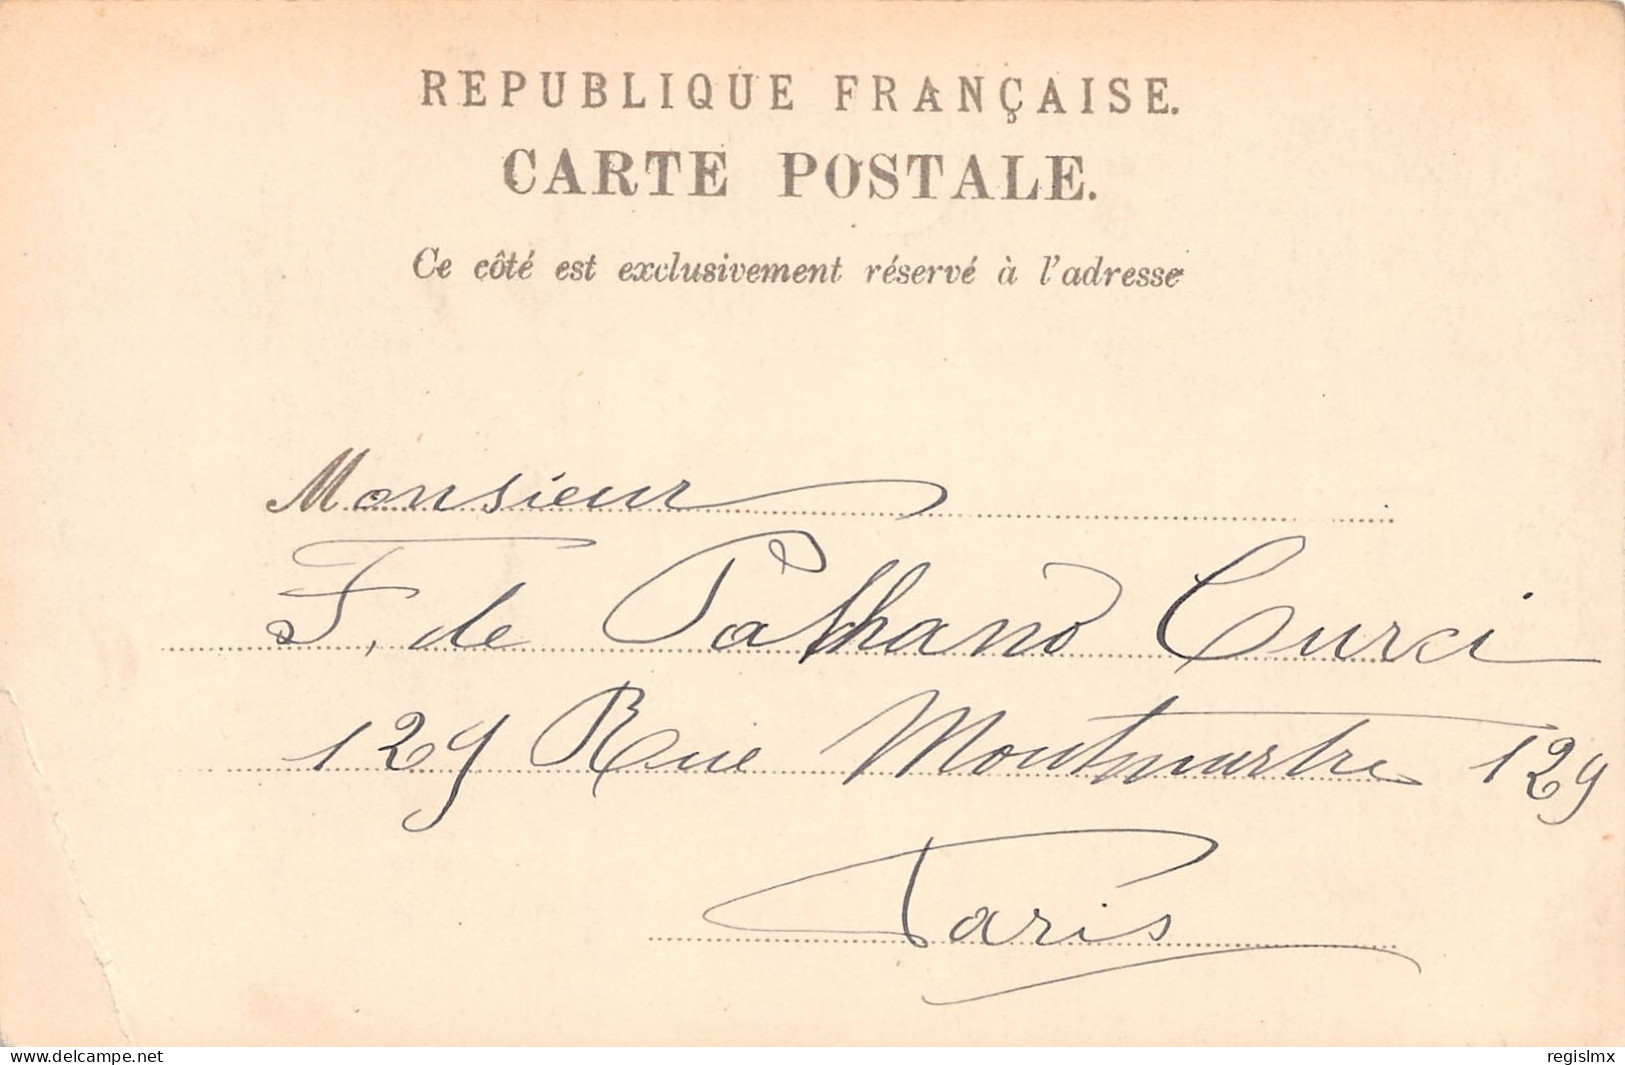 REPUBLIQUE FRANÇAISE.
CARTE POSTALE.
Ce côté est exclusivement réservé à l'adresse
Monsieur
F. de Palhano Curci
129 Rue Montmartre 129
Paris
delcampe.net
regislmx